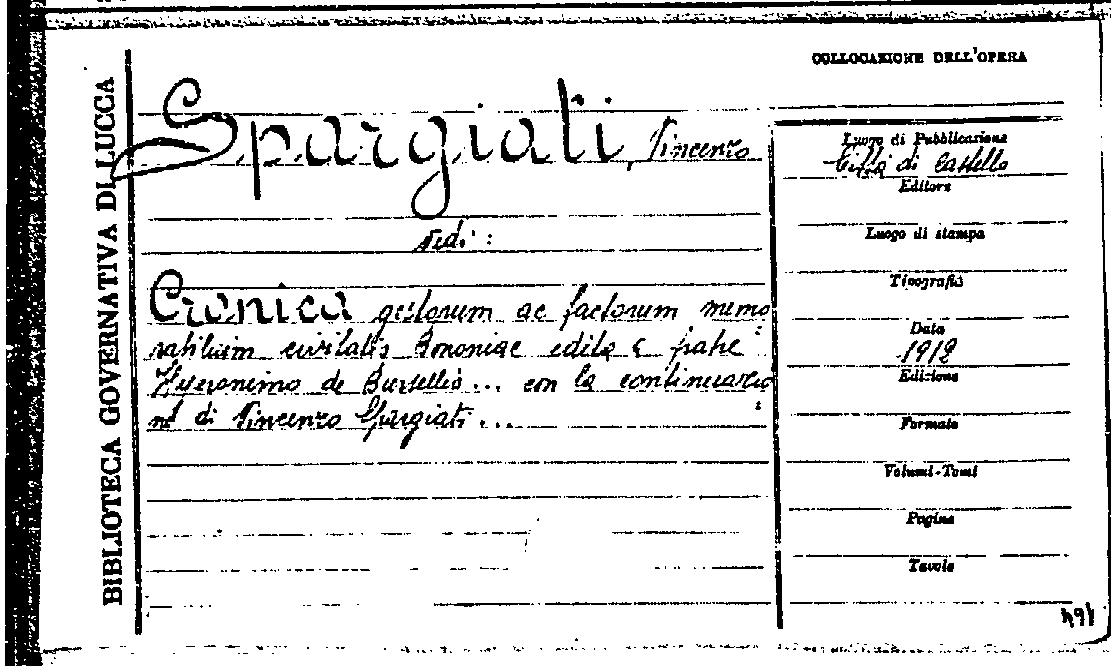 BIBLIOTECA GOVERNATIVA DI LUCCA
COLLOCAZIONE DELL'OPERA
Spargiati, Vincenzo
Vedi:
Cronica gestorum ac factorum memo=
rabilium civitatis Bononiae edita a fratre
Hyeronimo de Bursellis... con la continuazio=
ne di Vincenzo Spargiati...
Luogo di Pubblicazione
Città di Castello
Editore
Luogo di stampa
Tipografia
Data
1912
Edizione
Formato
Volumi-Tomi
Pagine
Tavole